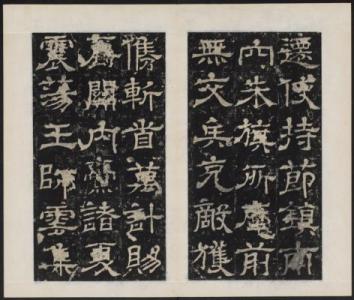 遷使持節鎮南
內朱旗所麾前
無交兵克敵獲
儁斬首萬計賜
爵關內諸夏
震蕩王師雲集